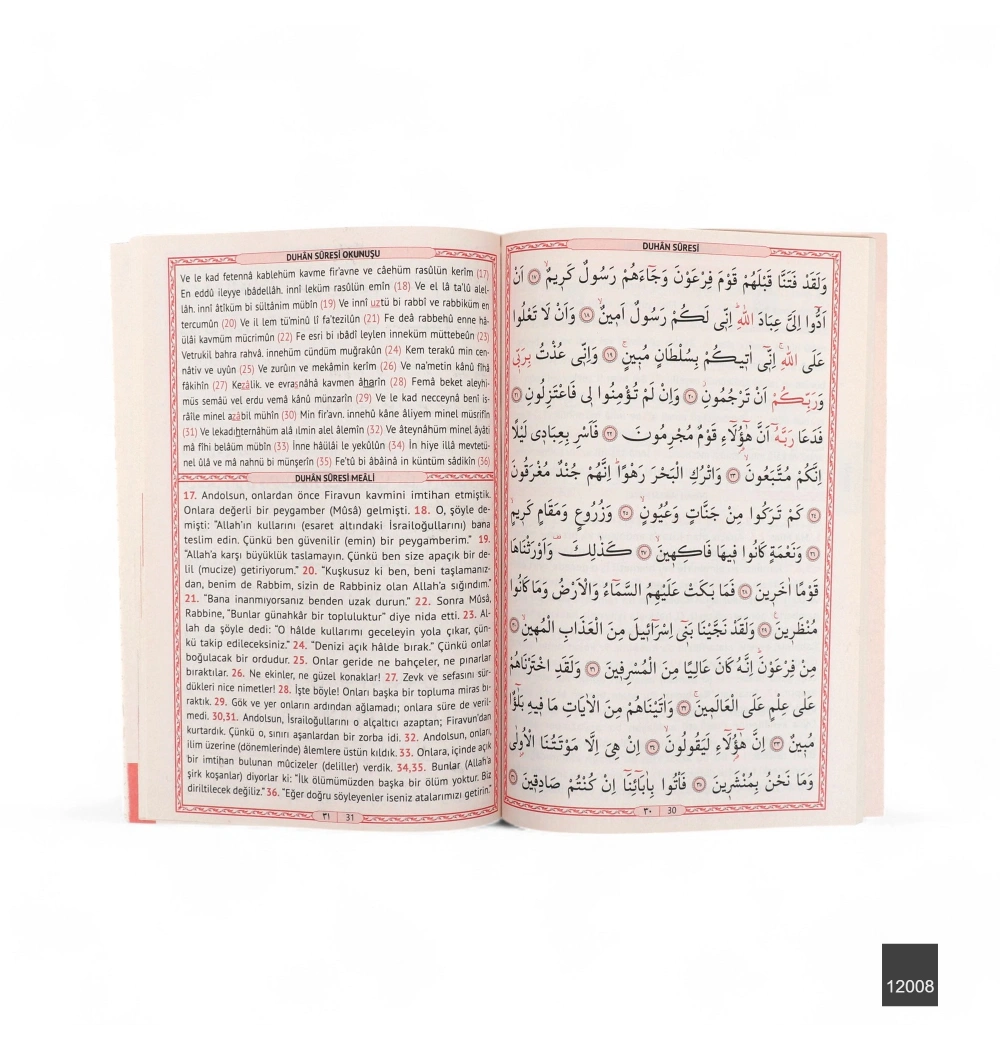 DUHÂN SÛRESİ OKUNUŞU
Ve le kad fetennâ kablehüm kavme fir'avne ve câehüm rasûlün kerîm (17)
En eddû ileyye ıbâdellâh. innî leküm rasûlün emîn (18) Ve el lâ ta'lû alel-
lâh. innî âtîküm bi sültânim mübîn (19) Ve innî uztü bi rabbî ve rabbiküm en
tercumûn (20) Ve il lem tü'minû lî fa'tezilûn (21) Fe deâ rabbehû enne hâ-
ülâi kavmüm mücrimûn (22) Fe esri bi ıbâdî leylen inneküm müttebeûn (23)
Vetrukil bahra rahvâ. innehüm cündüm muğrakûn (24) Kem terakû min cen-
nâtiv ve uyûn (25) Ve zurûın ve mekâmin kerîm (26) Ve na'metin kânû fîhâ
fâkihîn (27) Kezâlik. ve evrasnâhâ kavmen âharîn (28) Femâ beket aleyhi-
müs semâü vel erdu vemâ kânû münzarîn (29) Ve le kad necceynâ benî is-
râîle minel azâbil mühîn (30) Min fir'avn. innehû kâne âliyem minel müsrifîn
(31) Ve lekadıhternâhüm alâ ılmin alel âlemîn (32) Ve âteynâhüm minel âyâti
mâ fîhi belâüm mübîn (33) İnne hâülâi le yekûlûn (34) İn hiye illâ mevtetü-
nel ûlâ ve mâ nahnü bi münşerîn (35) Fe'tû bi âbâinâ in küntüm sâdikîn (36)
DUHÂN SÛRESİ MEÂLİ
17. Andolsun, onlardan önce Firavun kavmini imtihan etmiştik.
Onlara değerli bir peygamber (Mûsâ) gelmişti. 18. O, şöyle de-
mişti: "Allah'ın kullarını (esaret altındaki İsrailoğullarını) bana
teslim edin. Çünkü ben güvenilir (emin) bir peygamberim." 19.
"Allah'a karşı büyüklük taslamayın. Çünkü ben size apaçık bir de-
lil (mucize) getiriyorum." 20. "Kuşkusuz ki ben, beni taşlamanız-
dan, benim de Rabbim, sizin de Rabbiniz olan Allah'a sığındım."
21. "Bana inanmıyorsanız benden uzak durun." 22. Sonra Mûsâ,
Rabbine, "Bunlar günahkâr bir topluluktur" diye nida etti. 23. Al-
lah da şöyle dedi: "O hâlde kullarımı geceleyin yola çıkar, çün-
kü takip edileceksiniz." 24. "Denizi açık hâlde bırak." Çünkü onlar
boğulacak bir ordudur. 25. Onlar geride ne bahçeler, ne pınarlar
bıraktılar. 26. Ne ekinler, ne güzel konaklar! 27. Zevk ve sefasını sür-
dükleri nice nimetler! 28. İşte böyle! Onları başka bir topluma miras bı-
raktık. 29. Gök ve yer onların ardından ağlamadı; onlara süre de veril-
medi. 30,31. Andolsun, İsrailoğullarını o alçaltıcı azaptan; Firavun'dan
kurtardık. Çünkü o, sınırı aşanlardan bir zorba idi. 32. Andolsun, onları,
ilim üzerine (dönemlerinde) âlemlere üstün kıldık. 33. Onlara, içinde açık
bir imtihan bulunan mûcizeler (deliller) verdik. 34,35. Bunlar (Allah'a
şirk koşanlar) diyorlar ki: "İlk ölümümüzden başka bir ölüm yoktur. Biz
diriltilecek değiliz." 36. "Eğer doğru söyleyenler iseniz atalarımızı getirin."
٣١ 31
DUHÂN SÛRESİ
وَلَقَدْ فَتَنَّا قَبْلَهُمْ قَوْمَ فِرْعَوْنَ وَجَٓاءَهُمْ رَسُولٌ كَرِيمٌۙ ﴿١٧﴾ اَنْ
اَدُّٓوا اِلَيَّ عِبَادَ اللّٰهِۜ اِنّ۪ي لَكُمْ رَسُولٌ اَم۪ينٌۙ ﴿١٨﴾ وَاَنْ لَا تَعْلُوا
عَلَى اللّٰهِۚ اِنّ۪ٓي اٰت۪يكُمْ بِسُلْطَانٍ مُب۪ينٍۚ ﴿١٩﴾ وَاِنّ۪ي عُذْتُ بِرَبّ۪ي
وَرَبِّكُمْ اَنْ تَرْجُمُونِۘ ﴿٢٠﴾ وَاِنْ لَمْ تُؤْمِنُوا ل۪ي فَاعْتَزِلُونِ ﴿٢١﴾
فَدَعَا رَبَّهُٓ اَنَّ هٰٓؤُ۬لَٓاءِ قَوْمٌ مُجْرِمُونَ ﴿٢٢﴾ فَاَسْرِ بِعِبَاد۪ي لَيْلًا
اِنَّكُمْ مُتَّبَعُونَۙ ﴿٢٣﴾ وَاتْرُكِ الْبَحْرَ رَهْوًاۜ اِنَّهُمْ جُنْدٌ مُغْرَقُونَ
﴿٢٤﴾ كَمْ تَرَكُوا مِنْ جَنَّاتٍ وَعُيُونٍۙ ﴿٢٥﴾ وَزُرُوعٍ وَمَقَامٍ كَر۪يمٍۙ
﴿٢٦﴾ وَنَعْمَةٍ كَانُوا ف۪يهَا فَاكِه۪ينَۙ ﴿٢٧﴾ كَذٰلِكَ۠ وَاَوْرَثْنَاهَا
قَوْمًا اٰخَر۪ينَ ﴿٢٨﴾ فَمَا بَكَتْ عَلَيْهِمُ السَّمَٓاءُ وَالْاَرْضُ وَمَا كَانُوا
مُنْظَر۪ينَ۟ ﴿٢٩﴾ وَلَقَدْ نَجَّيْنَا بَن۪ٓي اِسْرَٓائ۪لَ مِنَ الْعَذَابِ الْمُه۪ينِۙ ﴿٣٠﴾
مِنْ فِرْعَوْنَۜ اِنَّهُ كَانَ عَالِيًا مِنَ الْمُسْرِف۪ينَ ﴿٣١﴾ وَلَقَدِ اخْتَرْنَاهُمْ
عَلٰى عِلْمٍ عَلَى الْعَالَم۪ينَۚ ﴿٣٢﴾ وَاٰتَيْنَاهُمْ مِنَ الْاٰيَاتِ مَا ف۪يهِ بَلٰٓؤٌ۬ا
مُب۪ينٌ ﴿٣٣﴾ اِنَّ هٰٓؤُ۬لَٓاءِ لَيَقُولُونَۙ ﴿٣٤﴾ اِنْ هِيَ اِلَّا مَوْتَتُنَا الْاُو۫لٰى
وَمَا نَحْنُ بِمُنْشَر۪ينَ ﴿٣٥﴾ فَأْتُوا بِاٰبَٓائِنَٓا اِنْ كُنْتُمْ صَادِق۪ينَ ﴿٣٦﴾
٣٠ 30
12008